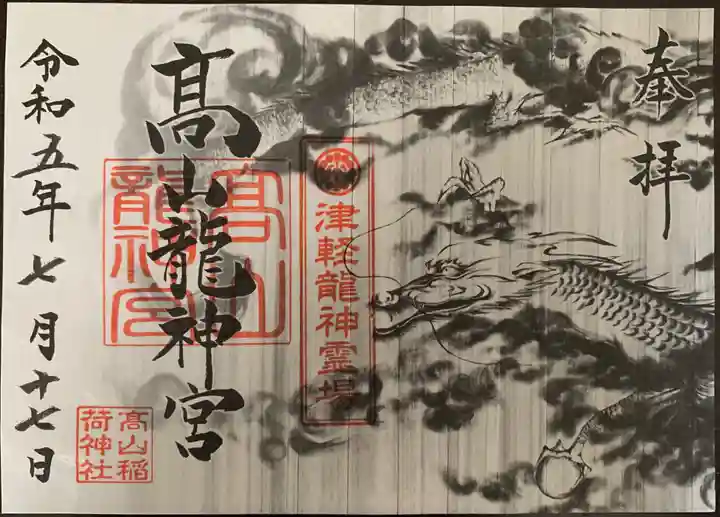 奉拝
津軽龍神霊場
髙山龍神宮
髙山龍神宮
髙山稲
荷神社
令和五年七月十七日